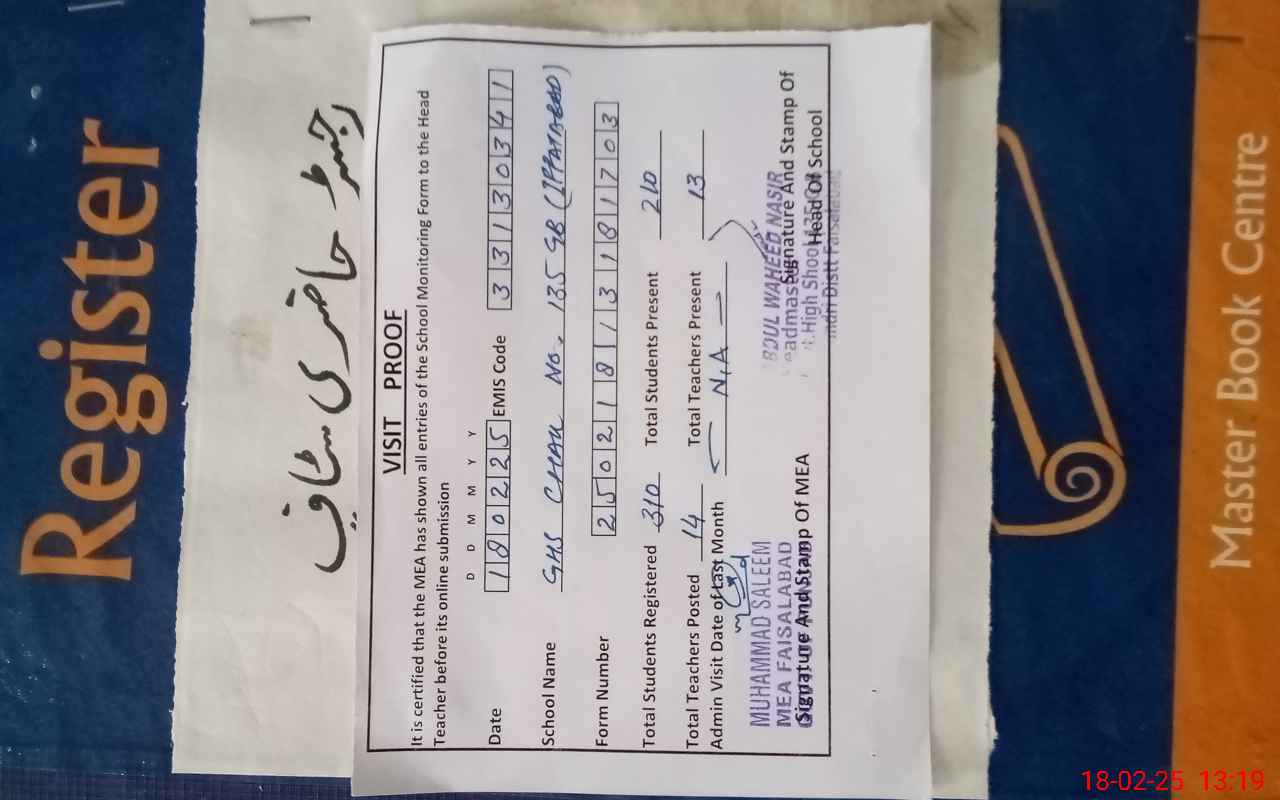 Register
رجسٹر حاضری سٹاف
VISIT PROOF
It is certified that the MEA has shown all entries of the School Monitoring Form to the Head
Teacher before its online submission
D D M M Y Y
Date 180225 EMIS Code 33130341
School Name GHS CHAK No. 135 GB (IFFATABAD)
Form Number 25021813181703
Total Students Registered 310 Total Students Present 210
Total Teachers Posted 14 Total Teachers Present 13
Admin Visit Date of Last Month N.A
MUHAMMAD SALEEM
MEA FAISALABAD
Signature And Stamp Of MEA
BDUL WAHEED NASIR
eadmaster
Signature And Stamp Of
High Shool 135
Head Of School
ndri Distt Faisalabad
Master Book Centre
18-02-25 13:19